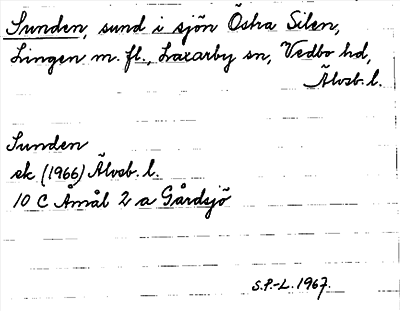 Sunden, sund i sjön Östra Silen,
Lingen m. fl., Laxarby sn, Vedbo hd,
Älvsb. l.
Sunden
ek (1966) Älvsb. l.
10 C Åmål 2 a Gårdsjö
S.P.-L. 1967.